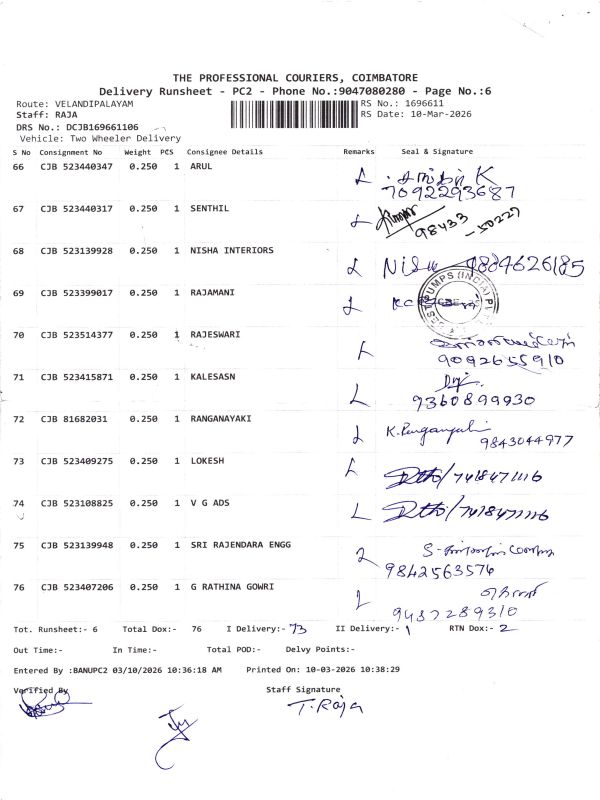 THE PROFESSIONAL COURIERS, COIMBATORE
Delivery Runsheet - PC2 - Phone No.:9047080280 - Page No.:6
Route: VELANDIPALAYAM RS No.: 1696611
Staff: RAJA RS Date: 10-Mar-2026
DRS No.: DCJB169661106
Vehicle: Two Wheeler Delivery
S No Consignment No Weight PCS Consignee Details Remarks Seal & Signature
66 CJB 523440347 0.250 1 ARUL
7092293687
67 CJB 523440317 0.250 1 SENTHIL
98433 -50227
68 CJB 523139928 0.250 1 NISHA INTERIORS Nisha 9884626185
69 CJB 523399017 0.250 1 RAJAMANI
70 CJB 523514377 0.250 1 RAJESWARI
9092655910
71 CJB 523415871 0.250 1 KALESASN
9360899930
72 CJB 81682031 0.250 1 RANGANAYAKI
9843044977
73 CJB 523409275 0.250 1 LOKESH L /7418471116
74 CJB 523108825 0.250 1 V G ADS L /7418471116
75 CJB 523139948 0.250 1 SRI RAJENDARA ENGG
9842563576
76 CJB 523407206 0.250 1 G RATHINA GOWRI
9487289310
Tot. Runsheet:- 6 Total Dox:- 76 I Delivery:- 73 II Delivery:- 1 RTN Dox:- 2
Out Time:- In Time:- Total POD:- Delvy Points:-
Entered By :BANUPC2 03/10/2026 10:36:18 AM Printed On: 10-03-2026 10:38:29
Verified By Staff Signature
T. Raja